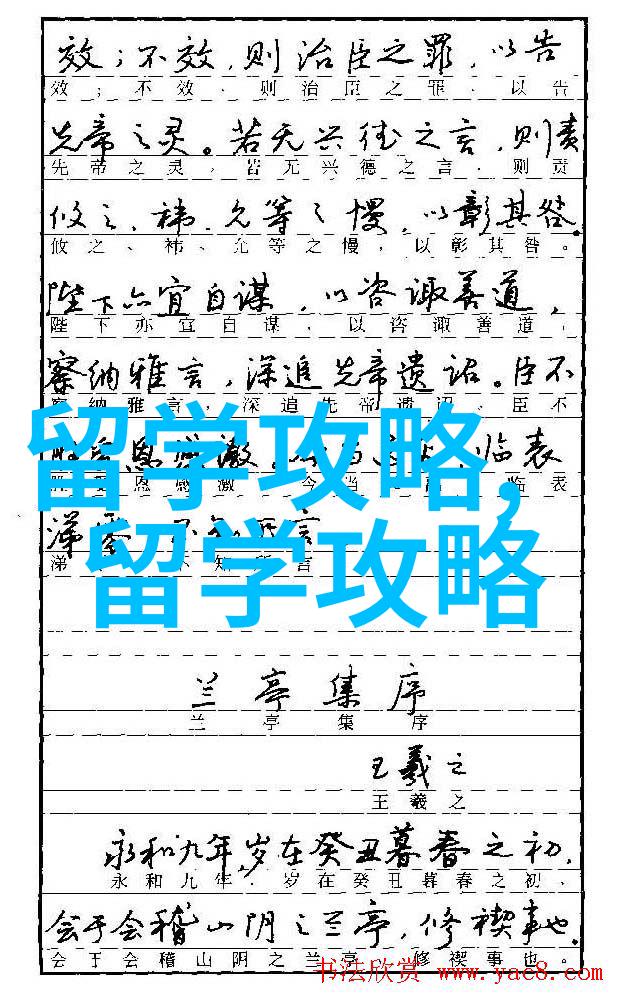 效；不效，则治臣之罪，以告
效；不效、则治臣之罪、以告
先帝之灵。若无兴德之言，则责
先帝之灵，若无兴德之言、则责
攸之、祎、允等之慢，以彰其咎。
攸之、祎、允等之慢，以彰其咎。
陛下亦宜自谋，以咨诹善道，
陛下亦宜自谋，以咨诹善道，
察纳雅言，深追先帝遗诏。臣不
察纳雅言，深追先帝遗诏、臣不
留学攻略,
恩感激 临表
恩感激 今当 离 临表
涕零 不知所言
涕 不知所言
留学攻略
兰亭集序
兰亭集序
王羲之
王羲之
永和九年，岁在癸丑暮春之初，
永和九年，岁在癸丑暮春之初、
会于会稽山阴之兰亭，修禊事也。
会于会稽山阴之兰亭，修禊事也。
书法欣赏 www.yac8.com